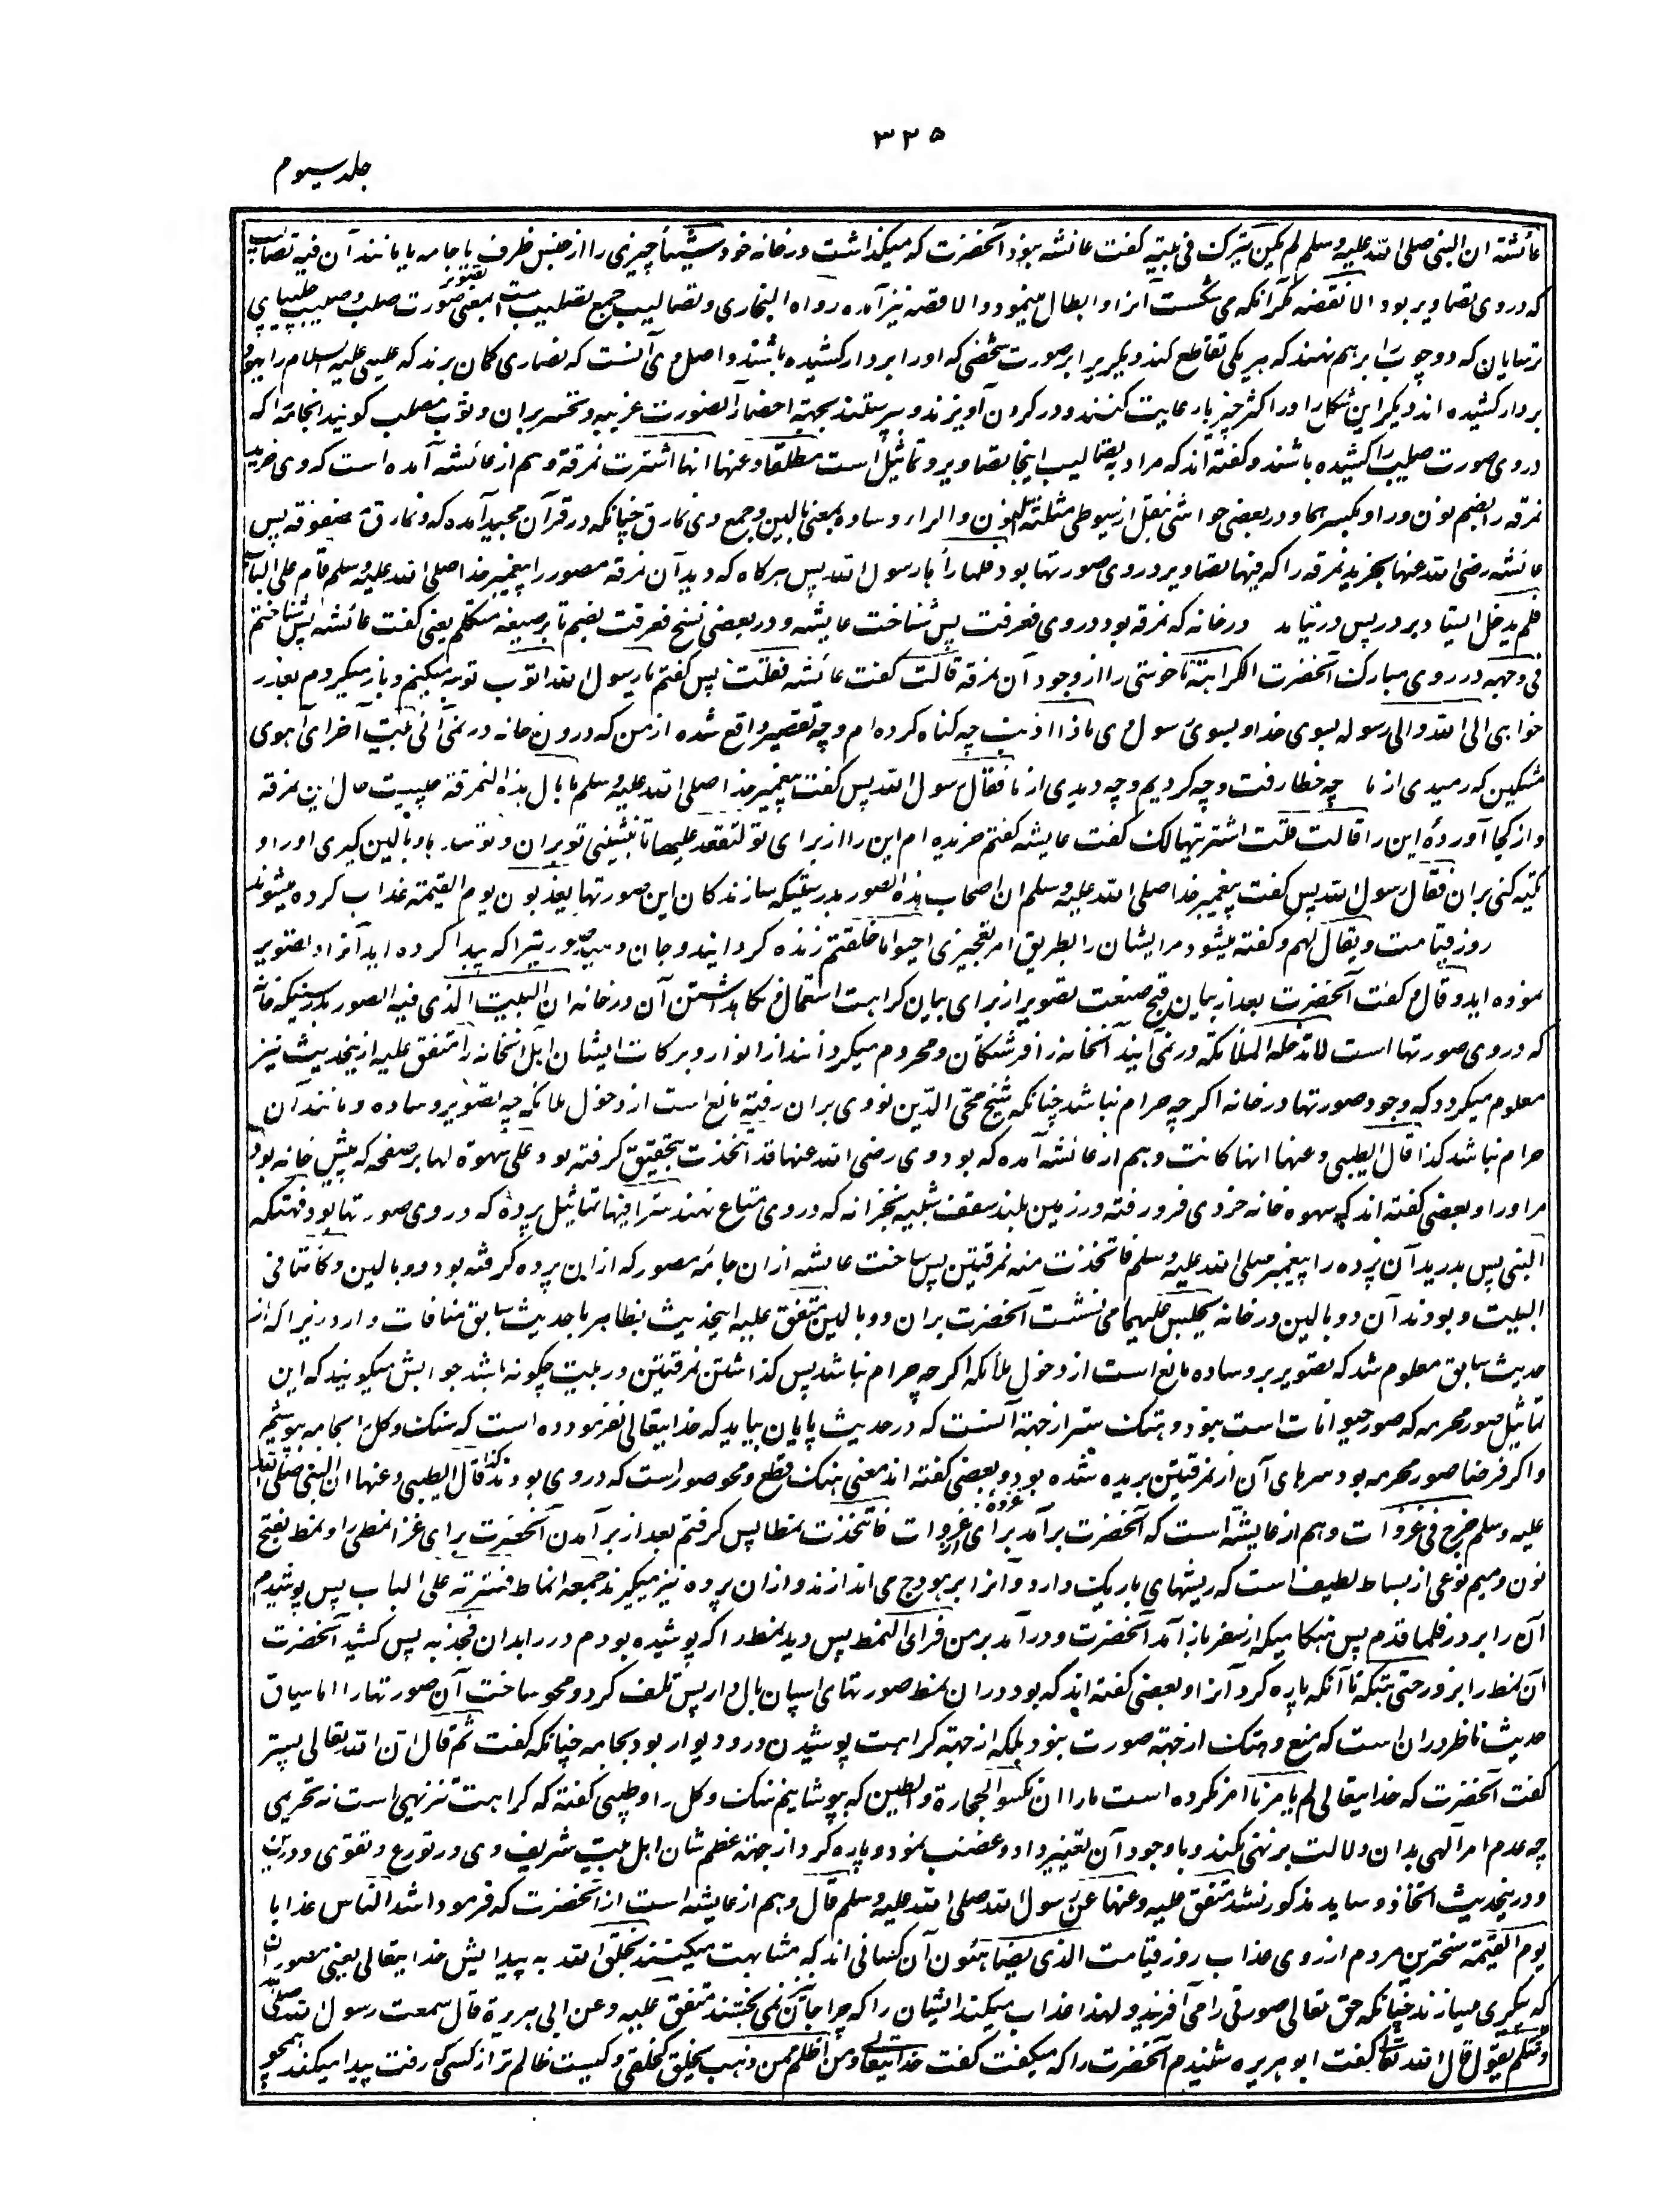 ۳۲۵
جلد سیوم
عائشة ان النبی صلی الله علیه وسلم لم یکن یترک فی بیته گفت عائشه نبود آنحضرت که میگذاشت در خانه خود شیئا چیزی را از جنس ظرف یا جامه یا مانند آن فیه تصالیب
که در وی تصاویر بود الا نقضه مگر آنکه می شکست آنرا و ابطال مینمود والا قضبه نیز آمده رواه البخاری و تصالیب جمع تصلیب ست بمعنی تصویر صورت صلب و صلیب چلیپای
ترسایان که دو چوب را بر هم نهند که هر یکی تقاطع کند دیگریرا بر صورت شخصی که او را بر دار کشیده باشند و اصل وی آنست که نصاری گمان برند که عیسی علیه السلام را یهود
بر دار کشیده اند و دیگر این شکل را در اکثر چیزها رعایت کنند و در گردن آویزند و بپرستند بجهة احضار آنصورت غریبه و تحسر بران و ثوب مصلب گویند آنجامه را که
در وی صورت صلیب را کشیده باشند و گفته اند که مراد به تصالیب اینجا تصاویر و تماثیل است مطلقا وعنها انها اشترت نمرقة و هم از عائشه آمده است که وی خرید
نمرقه را بضم نون و را و بکسر هما و در بعضی حواشی بنقل از سیوطی مثلثة النون والراء و ساده بمعنی بالین و جمع وی نمارق چنانکه در قرآن مجید آمده که و نمارق مصفوفة پس
عائشه رضی الله عنها بخرید نمرقه را که فیها تصاویر در وی صورتها بود فلما رآها رسول الله پس هرگاه که دید آن نمرقه مصور را پیغمبر خدا صلی الله علیه وسلم قام علی الباب
فلم یدخل ایستاد بر در پس در نیامد در خانه که نمرقه بود در وی فعرفت پس شناخت عایشه و در بعضی نسخ فعرفت بضم تا بر صیغه متکلم یعنی گفت عائشه پس شناختم
فی وجهه در روی مبارک آنحضرت الکراهیة ناخوشی را از وجود آن نمرقه قالت گفت عائشه فقلت پس گفتم یا رسول الله اتوب توبه میکنم و باز میگردم بعذر
خواهی الی الله والی رسوله بسوی خدا و بسوی رسول وی ماذا اذنبت چه گناه کرده ام و چه تقصیر واقع شده از من که درون خانه در نمی آئی بیت آخر ای آهوی
مشکین که رمیدی از ما چه خطا رفت و چه کردیم و چه دیدی از ما فقال رسول الله پس گفت پیغمبر خدا صلی الله علیه وسلم ما بال هذه النمرقة چیست حال این نمرقه
و از کجا آورده این را قالت قلت اشتریتها لک گفت عایشه گفتم خریده ام این را از برای تو لتقعد علیها تا بنشینی تو بران و توسدها و بالین گیری او را و
تکیه کنی بران فقال رسول الله پس گفت پیغمبر خدا صلی الله علیه وسلم ان اصحاب هذه الصور بدرستیکه سازندگان این صورتها یعذبون یوم القیمة عذاب کرده میشوند
روز قیامت و یقال لهم و گفته میشود مر ایشان را بطریق امر تعجیزی احیوا ما خلقتم زنده گردانید و جان دهید صورتیرا که پیدا کرده اید آنرا و تصویر
نموده اید و قال و گفت آنحضرت بعد از بیان قبح صنعت تصویر از برای بیان کراهت استعمال و نگاهداشتن آن در خانه ان البیت الذی فیه الصور بدرستیکه خانه
که در وی صورتها است لا تدخله الملائکة در نمی آیند آنخانه را فرشتگان و محروم میگردانند از انوار و برکات ایشان اهل آنخانه را متفق علیه ازینحدیث نیز
معلوم میگردد که وجود صورتها در خانه اگرچه حرام نباشد چنانکه شیخ محی الدین نووی بران رفته مانع است از دخول ملائکه چه تصویر و ساده و مانند آن
حرام نباشد کذا قال الطیبی وعنها انها کانت و هم از عائشه آمده که بود وی رضی الله عنها قد اتخذت بتحقیق گرفته بود علی سهوة لها بر صفحه که پیش خانه بود
مر او را و بعضی گفته اند که سهوه خانه خردی فرو رفته در زمین بلند سقف شبیه بخزانه که در وی متاع نهند سترا فیها تماثیل پرده که در وی صورتها بود فهتکه
النبی پس بدرید آن پرده را پیغمبر صلی الله علیه وسلم فاتخذت منه نمرقتین پس ساخت عایشه از ان جامه مصور که از این پرده گرفته بود دو بالین و کانتا فی
البیت و بودند آن دو بالین در خانه یجلس علیهما می نشست آنحضرت بران دو بالین متفق علیه اینحدیث بظاهر با حدیث سابق منافات دارد زیرا که از
حدیث سابق معلوم شد که تصویر بر وساده مانع است از دخول ملائکه اگرچه حرام نباشد پس گذاشتن نمرقتین در بیت چگونه باشد جوابش میگویند که این
تماثیل صور محرمه که صور حیوانات است نبود و هتک ستر از جهة آنست که در حدیث پایان بیاید که خدایتعالی نفرموده است که سنگ و گل را بجامه بپوشیم
و اگر فرضا صور محرمه بود سرهای آن از نمرقتین بریده شده بود و بعضی گفته اند معنی هتک قطع و محو صور است که در وی بودند کذا قال الطیبی وعنها ان النبی صلی الله
علیه وسلم خرج فی غزوات و هم از عایشه است که آنحضرت بر آمد برای غزوه از غزوات فاتخذت نمطا پس گرفتم بعد از بر آمدن آنحضرت برای غزا نمطی را و نمط بفتح
نون و میم نوعی از بساط لطیف است که ریشهای باریک دارد و آنرا بر هودج می اندازند و از ان پرده نیز میگیرند جمعه انماط فسترته علی الباب پس پوشیدم
آن را بر در فلما قدم پس هنگامیکه از سفر باز آمد آنحضرت و در آمد بر من فرای النمط پس دید نمط را که پوشیده بودم در را بدان فجذبه پس کشید آنحضرت
آن نمط را بزور حتی هتکه تا آنکه پاره کرد آنرا و بعضی گفته اند که بود در ان نمط صورتهای اسپان بال دار پس تلف کرد و محو ساخت آن صورتها را اما سیاق
حدیث ناظر در ان است که منع و هتک از جهة صورت نبود بلکه از جهة کراهت پوشیدن در و دیوار بود بجامه چنانکه گفت ثم قال ان الله تعالی پستر
گفت آنحضرت که خدایتعالی لم یامرنا امر نکرده است ما را ان نکسو الحجارة والطین که بپوشانیم سنگ و گل را و طیبی گفته که کراهت تنزیهی است نه تحریمی
چه عدم امر آلهی بدان دلالت بر نهی نمیکند و با وجود آن تغییر داد و غضب نمود و پاره کرد از جهة عظم شان اهل بیت شریف وی در تورع و تقوی
و در ینحدیث اتخاذ وساید مذکور نشد متفق علیه وعنها عن رسول الله صلی الله علیه وسلم قال و هم از عایشه است از آنحضرت که فرمود اشد الناس عذابا
یوم القیمة سختترین مردم از روی عذاب روز قیامت الذین یضاهئون آن کسانی اند که مشابهت میکنند بخلق الله به پیدایش خدایتعالی یعنی مصوران
که پیکری میسازند چنانکه حق تعالی صورتی را می آفریند و لهذا عذاب میکند ایشان را که چرا جان نمی بخشند متفق علیه وعن ابی هریرة قال سمعت رسول الله صلی الله علیه
وسلم یقول قال الله تعالی گفت ابو هریره شنیدم آنحضرت را که میگفت گفت خدایتعالی ومن اظلم ممن ذهب یخلق کخلقی و کیست ظالم تر از کسی که رفت پیدا میکند همچو